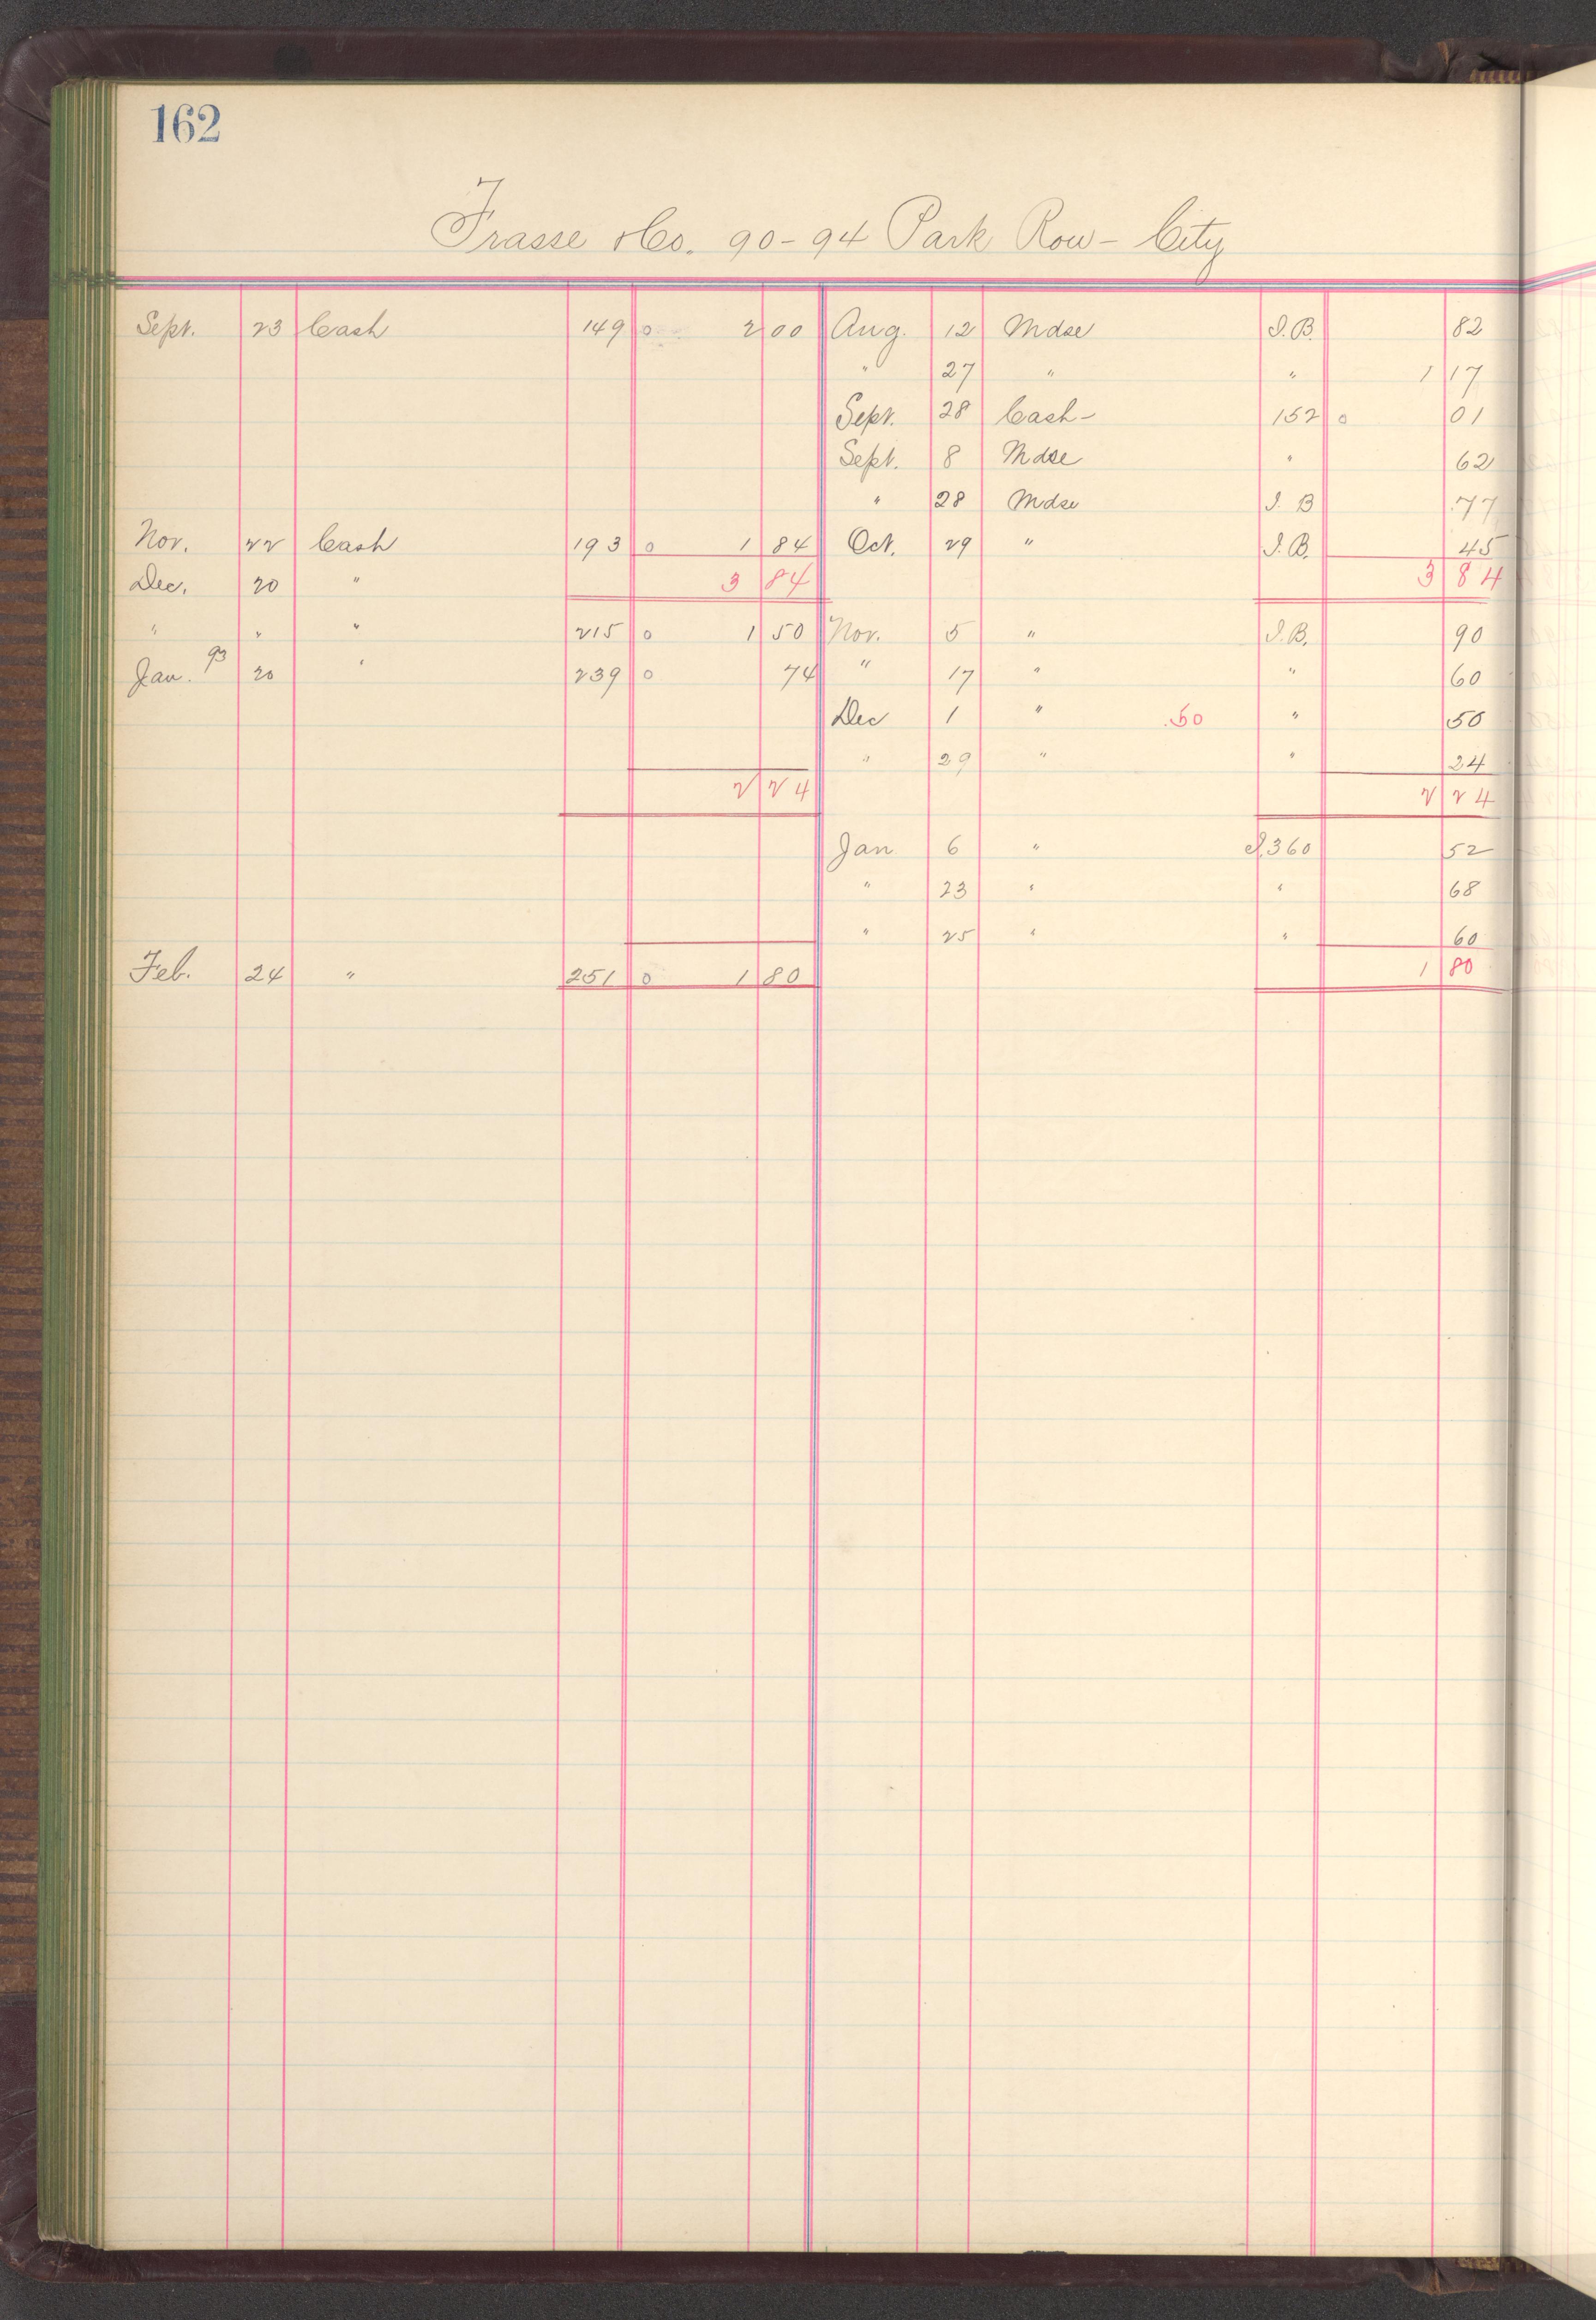 162
Frasse & Co. 90-94 Park Row - City
Sept. 23 Cash 149 0 2 00 Aug. 12 Mdse I.B. 82
" 27 " " 1 17
Sept. 28 Cash - 152 0 01
Sept. 8 Mdse " 62
" 28 Mdse I. B 77
Nov. 22 Cash 193 0 1 84 Oct. 29 " I.B. 45
Dec. 20 " 3 84 3 84
" " " 215 0 1 50 Nov. 5 " I.B. 90
Jan. 93 20 " 239 0 74 " 17 " " 60
Dec 1 " .50 " 50
" 29 " " 24
2 24 2 24
Jan 6 " I.360 52
" 23 " " 68
" 25 " " 60
Feb. 24 " 251 0 1 80 1 80